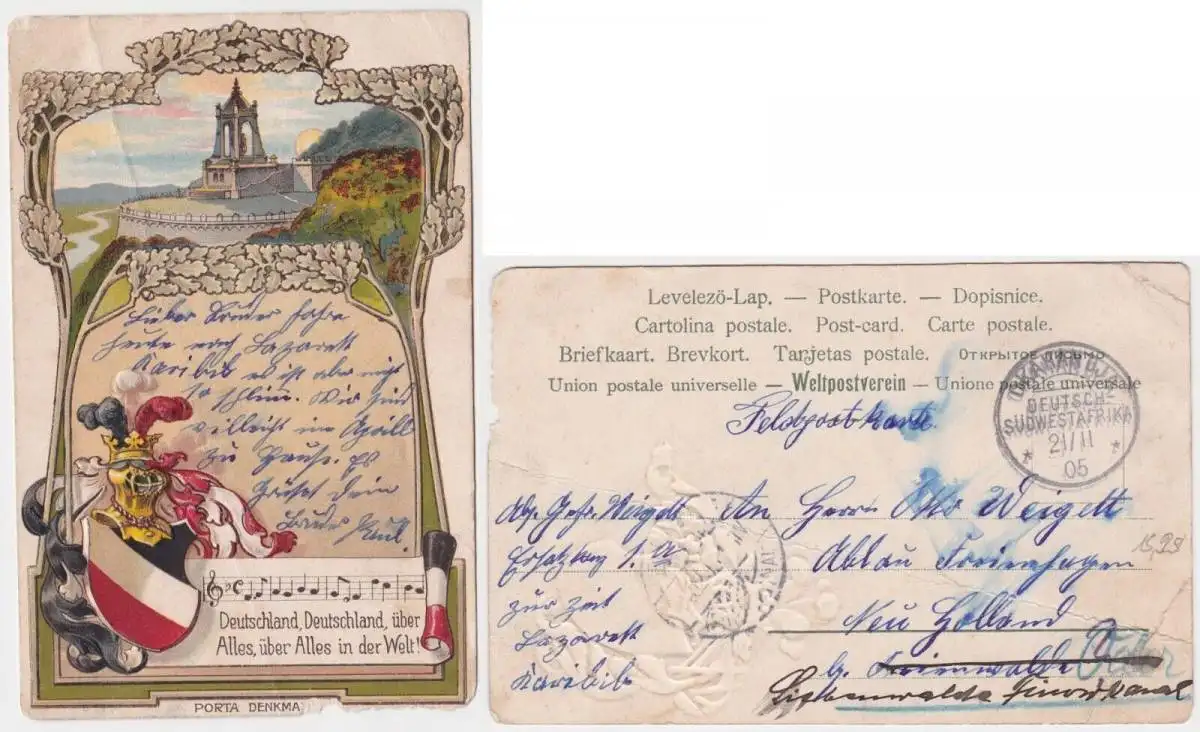 Lieber Bruder fahre
heute nach Lazarett
Karibib es ist aber nigt
so schlim. Wir sind
villeicht im Aprill
zu Hause. Es
Grüßt dein
Bruder Paul.
Deutschland, Deutschland, über
Alles, über Alles in der Welt!
PORTA DENKMA
Levelező-Lap. — Postkarte. — Dopisnice.
Cartolina postale. Post-card. Carte postale.
Briefkaart. Brevkort. Tarjetas postale. Открытое письмо
Union postale universelle — Weltpostverein — Unione postale universale
Feldpostkarte
OKAHANDJA
DEUTSCH-
SÜDWESTAFRIKA
21/11
05
Abs. Gefr. Weigelt
Ersatzkomp. 1. A
zur Zeit
Lazarett
Karibib
An Herrn Otto Weigelt
Ablau
Neu Holland
b. Freienwalde
Oder
Liebenwalde
15,29